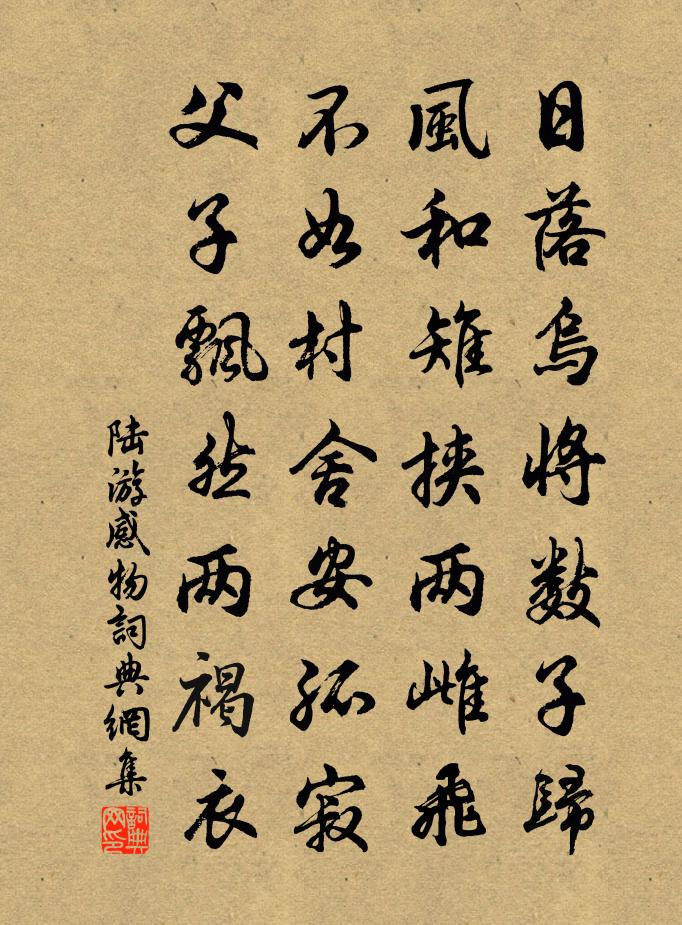 日落烏將數子歸
風和雉挾两雌飛
不如村舍安孤寂
父子飄然两褐衣
陆游感物詞典網集
詞典网印